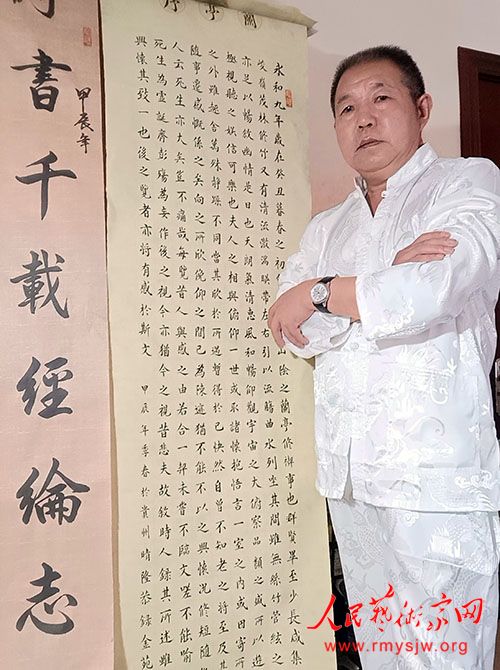 蘭亭序
永和九年歲在癸丑暮春之初
山陰之蘭亭修禊事也群賢畢至少長咸集
峻嶺茂林修竹又有清流激湍暎帶左右引以流觴曲水列坐其間雖無絲竹管弦之
亦足以暢敘幽情是日也天朗氣清惠風和暢仰觀宇宙之大俯察品類之盛所以遊
極視聽之娛信可樂也夫人之相與俯仰一世或取諸懷抱悟言一室之內或因寄所
之外雖趣舍萬殊靜躁不同當其欣於所遇暫得於己快然自曾不知老之將至及其
隨事遷感慨係之矣向之所欣俛仰之間已為陳迹猶不能不以之興懷況修短隨
人云死生亦大矣豈不痛哉每覽昔人興感之由若合一契未嘗不臨文嗟不能喻
死生為虛誕齊彭殤為妄作後之視今亦猶今之視昔悲夫故敘時人錄其所述雖
興懷其致一也後之覽者亦將有感於斯文 甲辰年季春於貴州晴隆茶錄金苑
甲辰年
書千載經綸志
人民艺术家网
www.rmysjw.org